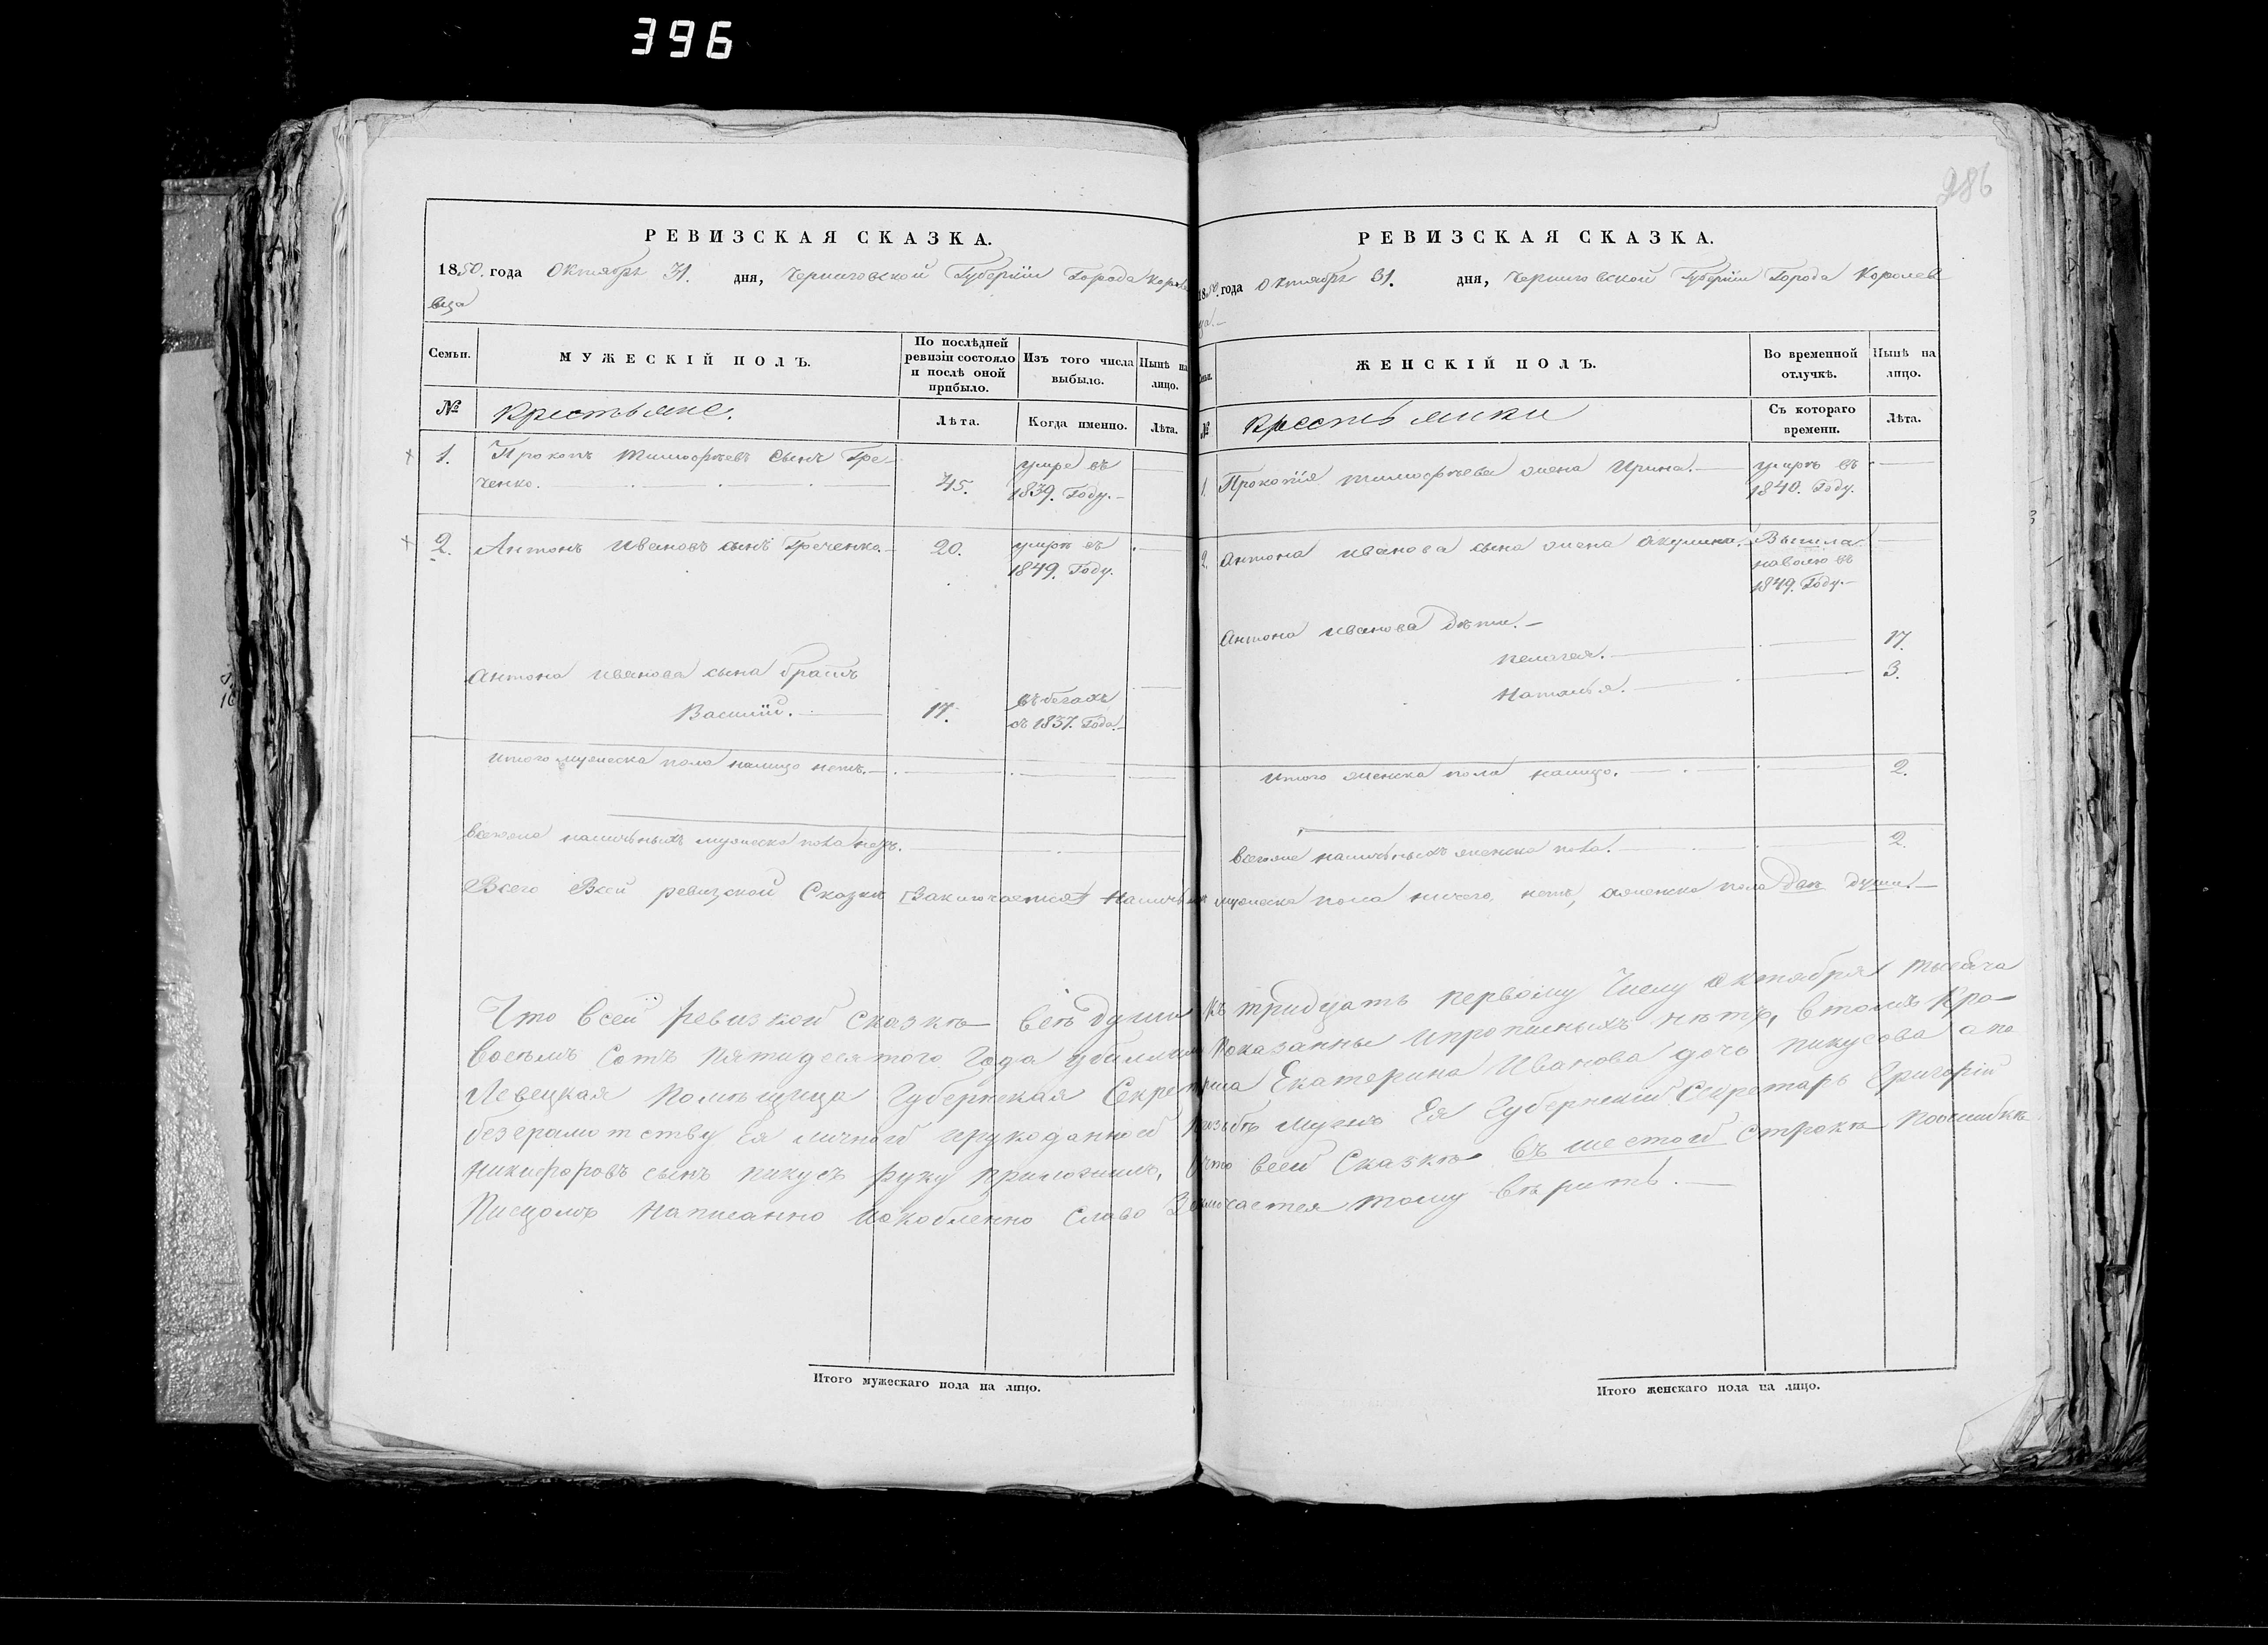 396
286
РЕВИЗСКАЯ СКАЗКА.
1850. года Октября 31. дня, Черниговской Губерніи Города Короле
вца
Семьи.
МУЖЕСКІЙ ПОЛЪ.
По послѣдней
ревизіи состояло
и послѣ оной
прибыло.
Изъ того числа
выбыло.
Нынѣ на
лицо.
№
Крестьяне.
Лѣта.
Когда именно.
Лѣта.
1. Прокопъ Тимофѣевъ сынъ Гре-
ченко. 45. умре въ
1839. Году.
2. Антонъ Ивановъ сынъ Греченко. 20. умрѣ въ
1849. Году.
Антона Иванова сына братъ
Василій. 17. въ бегахъ
съ 1837. Года.
Итого мужеска пола налицо нетъ.
Всего наличныхъ мужеска пола нетъ.
РЕВИЗСКАЯ СКАЗКА.
1850. года Октября 31. дня, Черниговской Губерніи Города Королев
ца.
ЖЕНСКІЙ ПОЛЪ.
Во временной
отлучкѣ.
Нынѣ на
лицо.
№
Крестьянки
Съ котораго
времени.
Лѣта.
1. Прокопія Тимофѣева жена Ирина. умрѣ въ
1840. Году.
2. Антона Иванова сына жена Акулина. Вышла
наволю въ
1849. Году.
Антона Иванова дѣти.
Пелагея. 17.
Наталья. 3.
Итого женска пола налицо. 2.
Всего наличныхъ женска пола. 2.
Всего Всей ревизской Сказки Заключается Наличныхъ мужеска пола ничего нетъ, аженска пола двѣ души.
Что Всей Ревизкой Сказкѣ всѣ души къ тридцать первому Числу Октября тысяча
Восемь Сотъ Пятидесятого Года Показанны Ипрописныхъ нѣтъ, Втомъ Кро-
Левецкая Помѣщица Губернская Секретарша Екатерина Иванова дочь Пикусова апо
безграмотству Ея личной ирукоданной прозьбѣ мужъ Ея Губернскій Секретарь Григорій
Никифоровъ сынъ Пикусъ руку приложилъ, Что всей Сказкѣ въ шестой строкѣ поошибкѣ
Писцомъ Написанно Искобленно Слово Заключается тому вѣрить.
Итого мужескаго пола на лицо.
Итого женскаго пола на лицо.